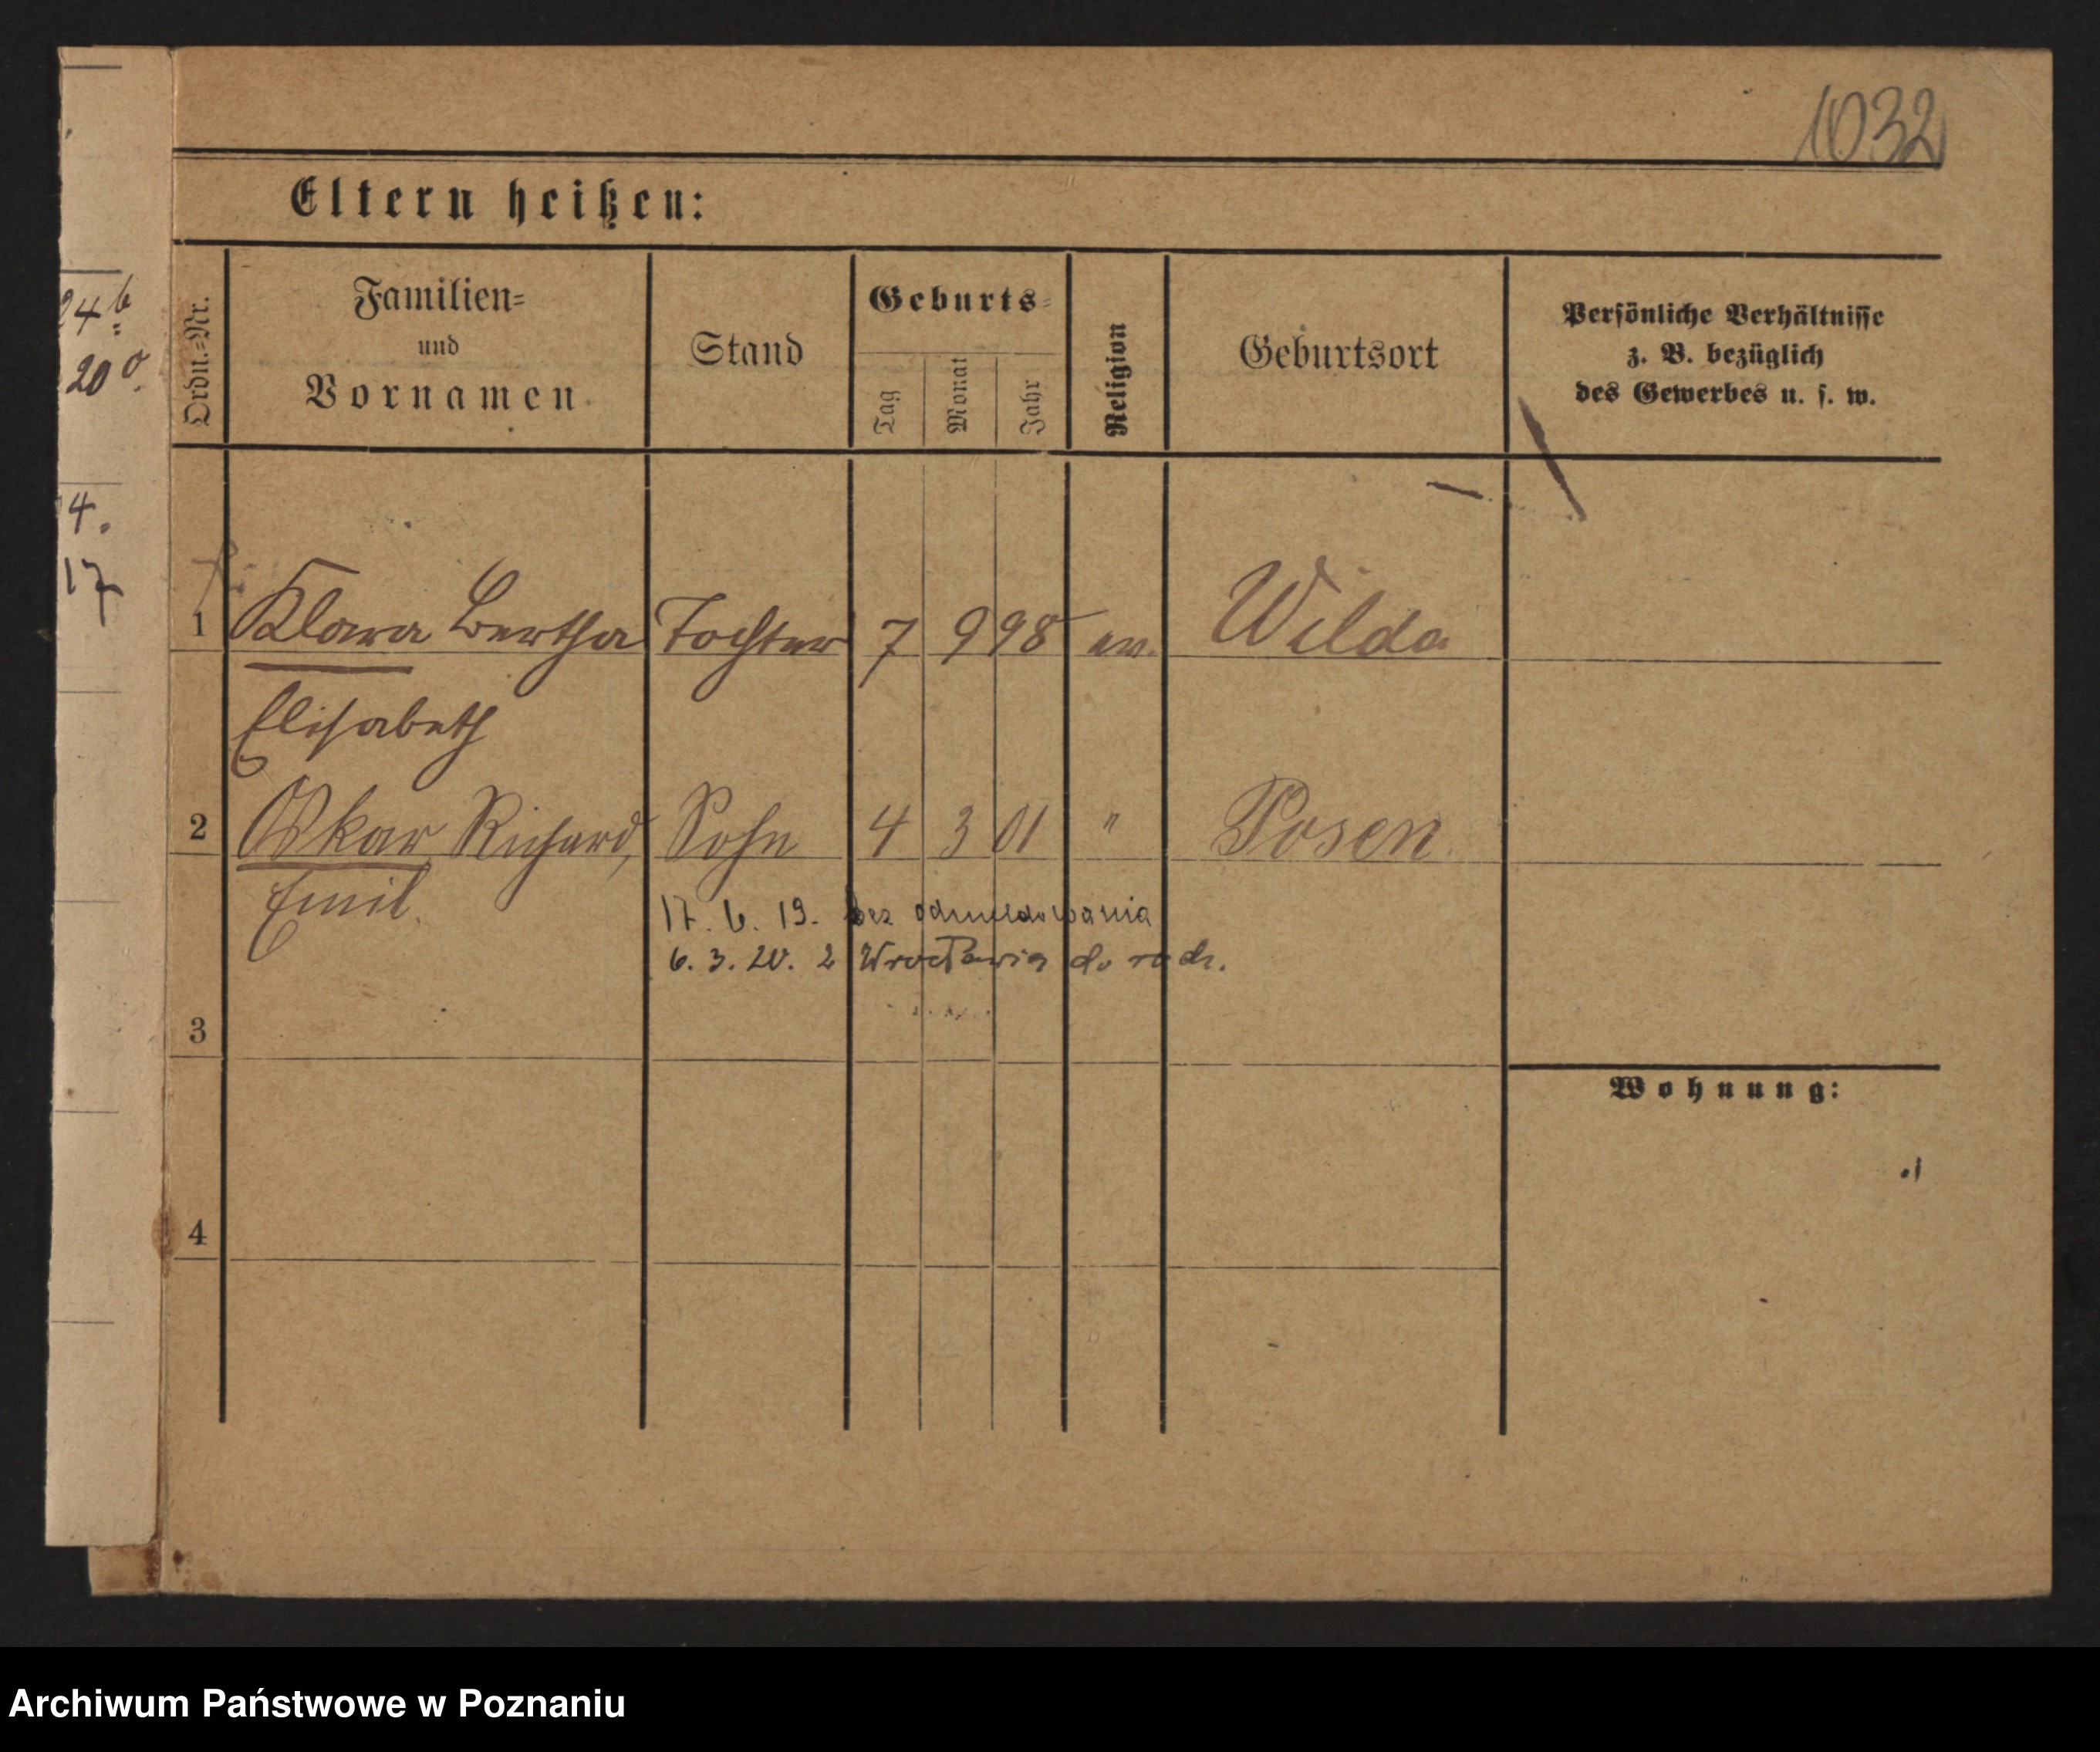 1032
Eltern heißen:
Ordn.=Nr.
Familien=
und
Vornamen
Stand
Geburts=
Tag
Monat
Jahr
Religion
Geburtsort
Persönliche Verhältnisse
z. B. bezüglich
des Gewerbes u. s. w.
24
20
4.
17
1 Klara Bertha Tochter 7 9 98 ev. Wilda
Elisabeth
2 Oskar Richard, Sohn 4 3 01 " Posen
Emil.
17. 6. 19. bez odmeldowania
6. 3. 20. z Wrocławia do rodz.
3
Wohnung:
4
Archiwum Państwowe w Poznaniu